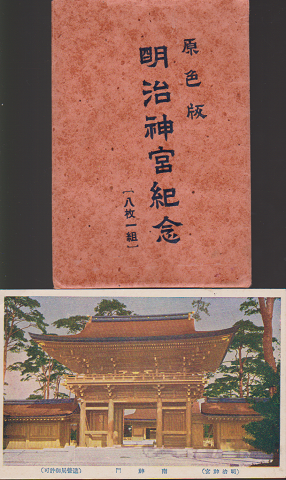 原色版
明治神宮紀念
【八枚一組】
(可許御局營造) 門神南 (宮神治明)